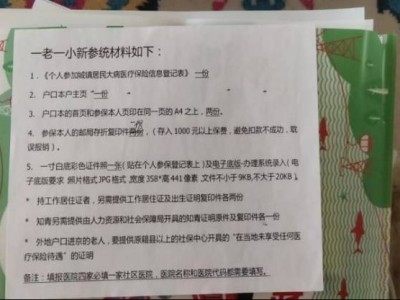 一老一小新参统材料如下：
1．《个人参加城镇居民大病医疗保险信息登记表》一份
2．户口本户主页 一份
3．户口本的首页和参保本人页印在同一页的 A4 之上，两份。
4．参保本人的邮局存折复印件两份，（存入 1000 元以上保费，避免扣款不成功，耽
误报销）。
5．一寸白底彩色证件照一张（贴在个人参保登记表上）及电子版-办理系统录入（电
子底版要求 照片格式 JPG 格式，宽度 358*高 441 像素 文件不小于 9KB，不大于 20KB）
* 持工作居住证者，另需提供工作居住证及出生证明复印件各两份
* 知青另需提供由人力资源和社会保障局开具的知青证明原件及复印件各一份
* 外地户口进京的老人，要提供原籍县以上的社保中心开具的“在当地未享受任何医
疗保险待遇”的证明
备注：填报医院四家必填一家社区医院，医院名称和医院代码都需要填写。